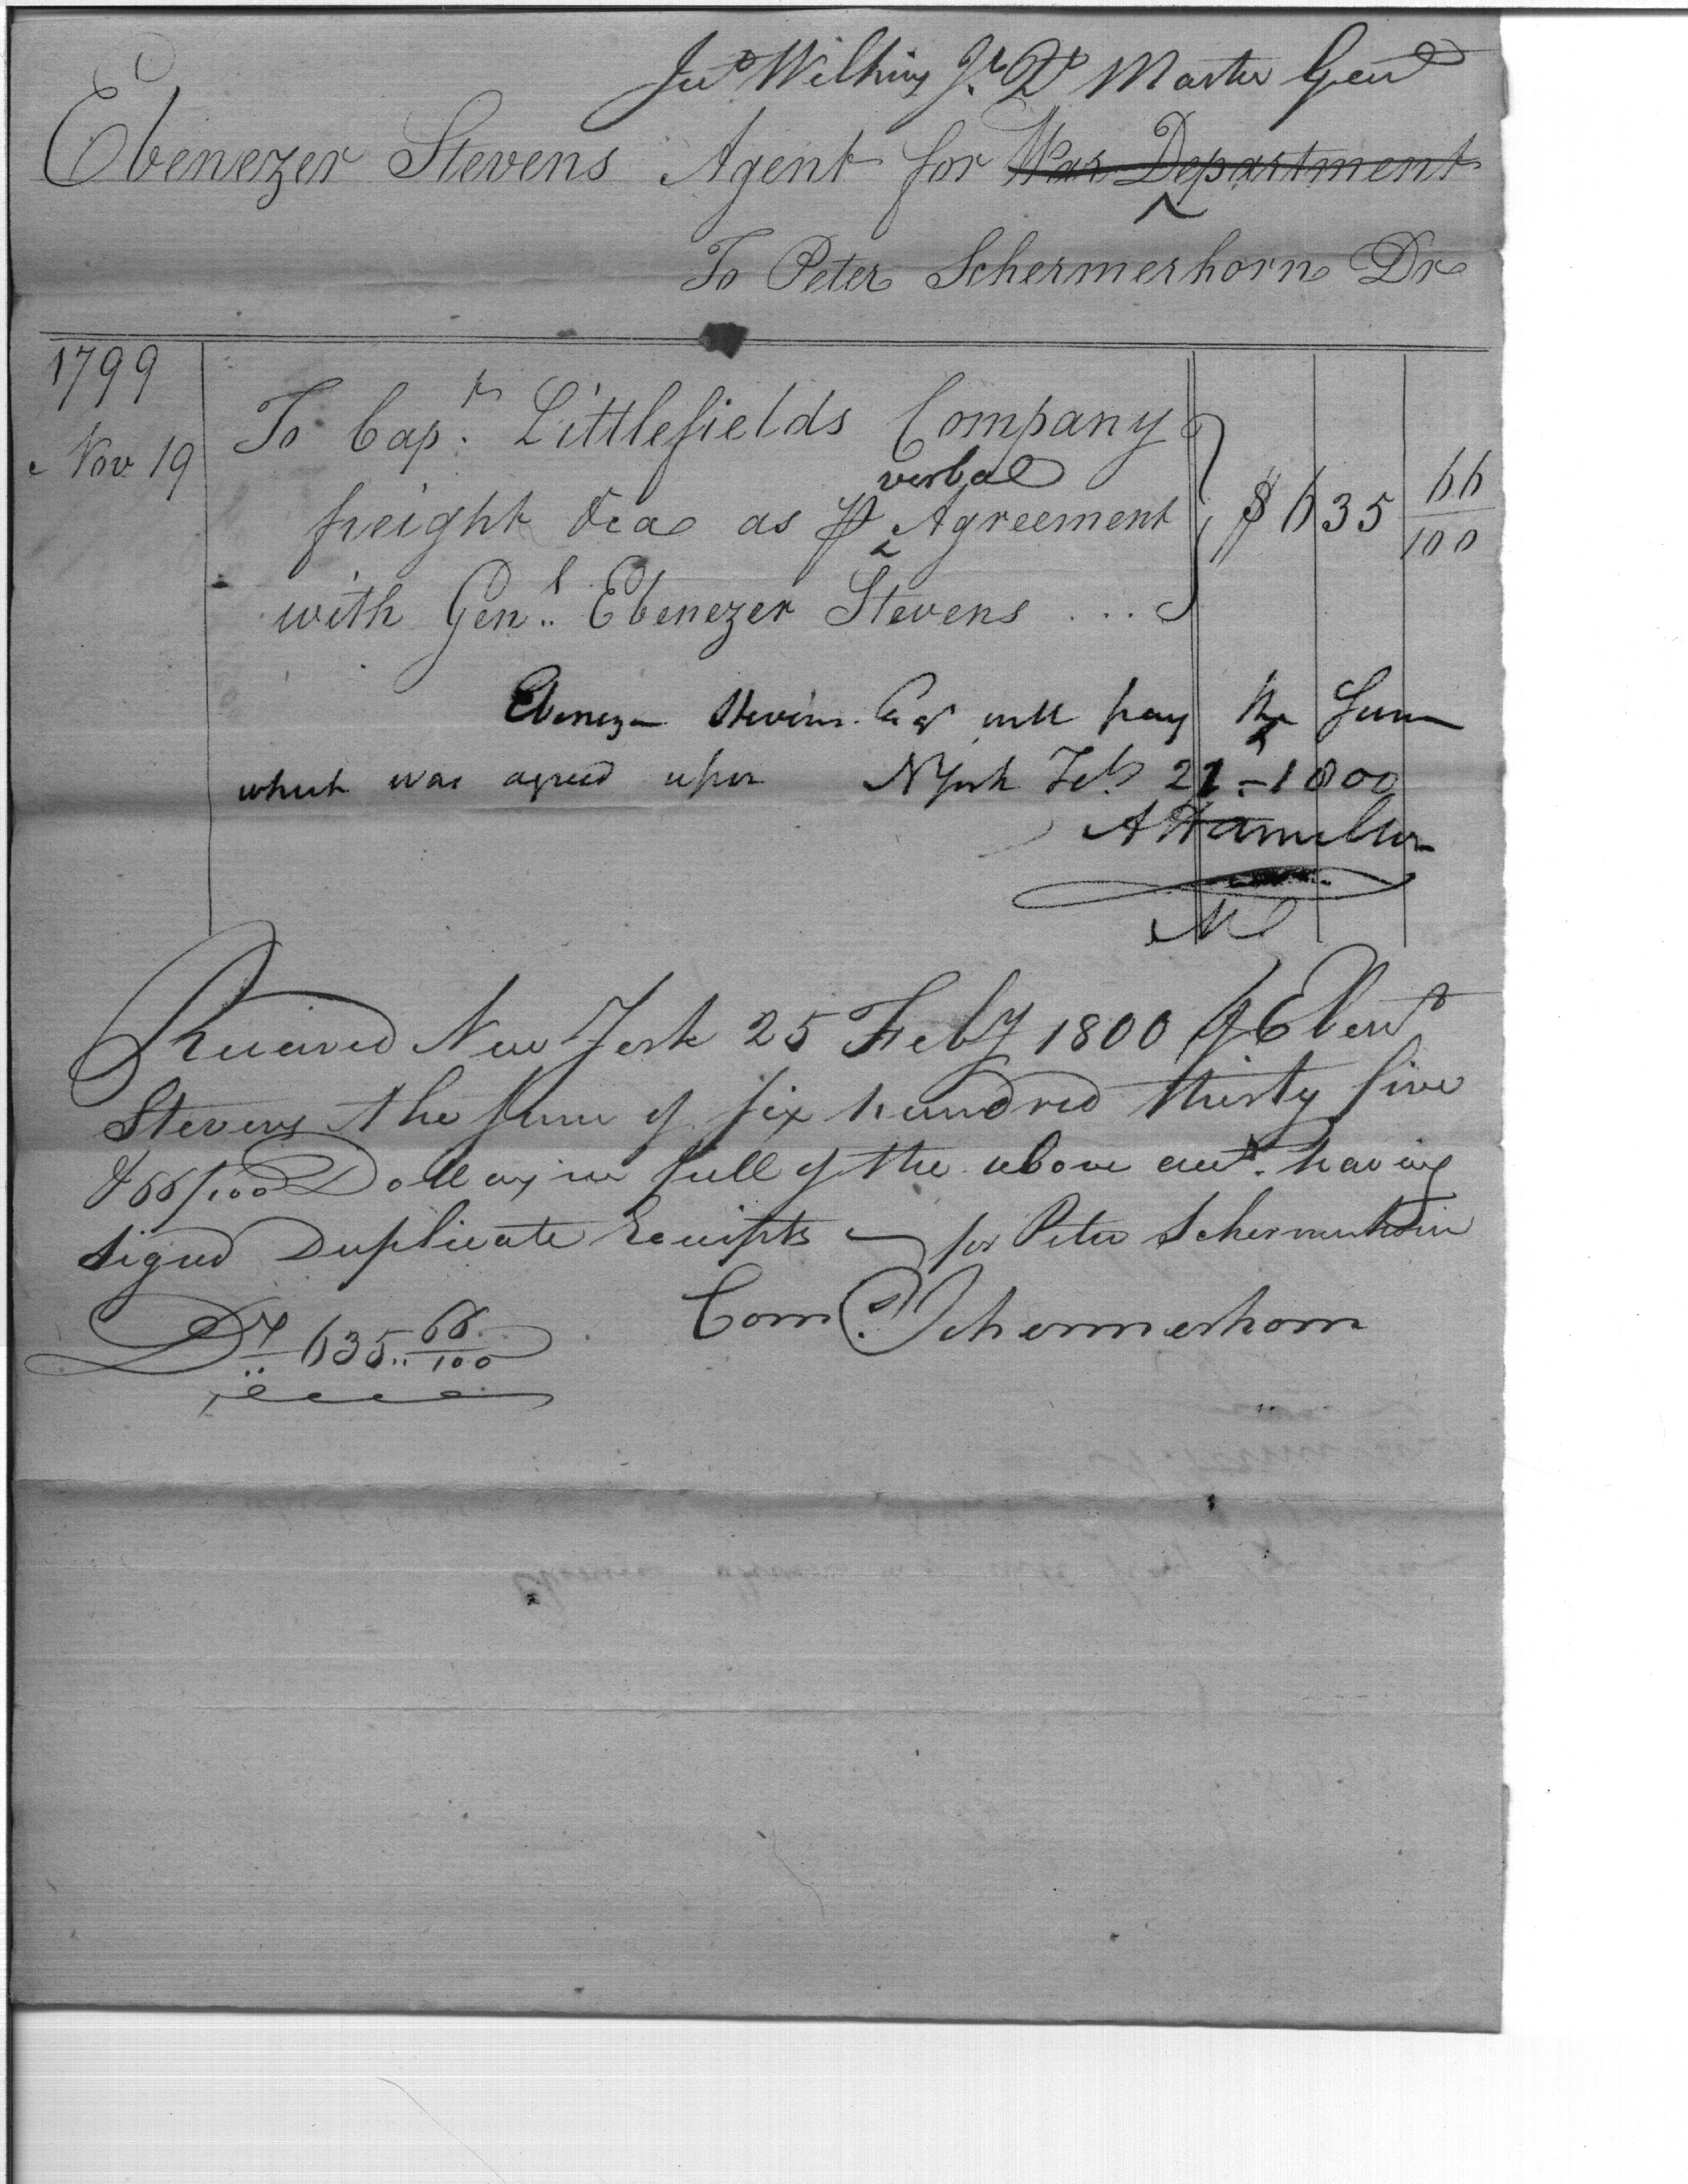 Jnº Wilkins Jr. Qr Master Genl
Ebenezer Stevens Agent for War Department
^
To Peter Schermerhorn Dr
1799
Nov 19
To Capt. Littlefields Company
verbal
freight &ca as ⅌ ^ Agreement
with Genl.. Ebenezer Stevens ...
$ 635 66/100
Ebenezer Stevens Esqr will pay the Sum
which was agreed upon NYork Feb. 21 - 1800
A Hamilton
MG
Received New York 25 Feby 1800 of Ebenr
Stevens the Sum of six hundred thirty five
& 66/100 Dollars in full of the above acct. having
signed Duplicate Receipts for Peter Schermerhorn
Corns. Schermerhorn
Drs 635.. 66/100